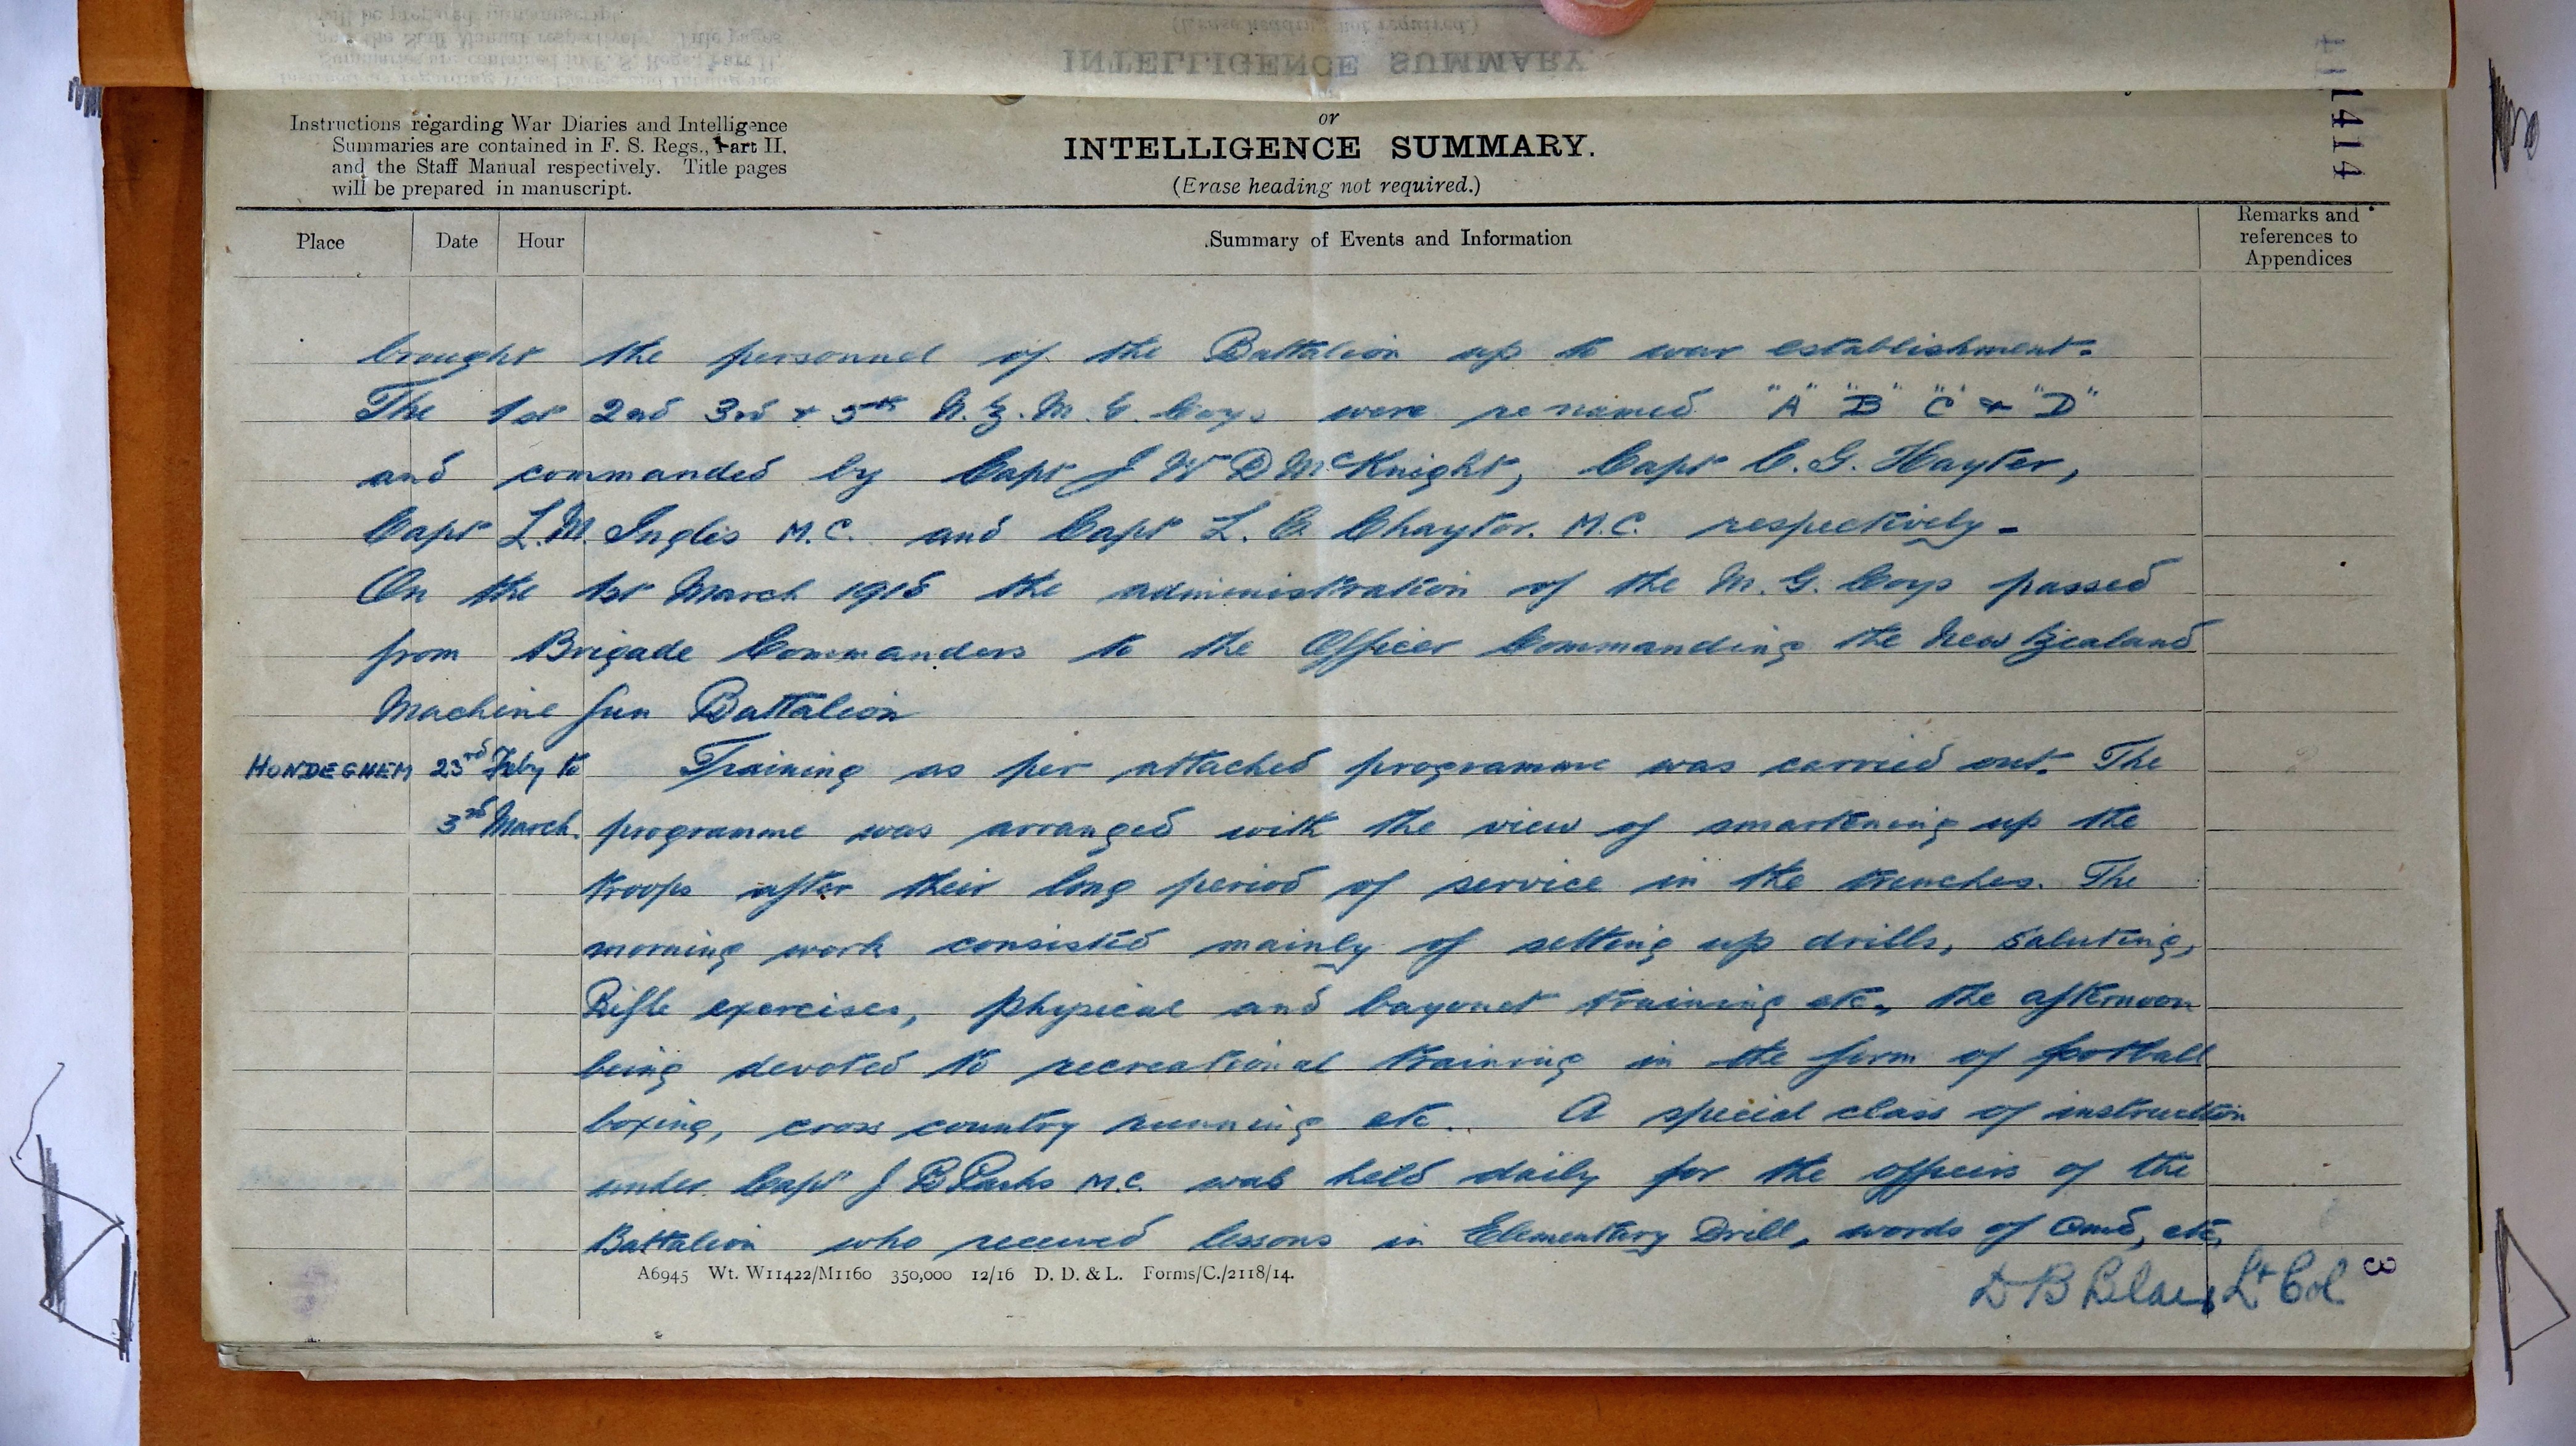 Instructions regarding War Diaries and Intelligence
Summaries are contained in F. S. Regs., Part II.
and the Staff Manual respectively. Title pages
will be prepared in manuscript.
or
INTELLIGENCE SUMMARY.
(Erase heading not required.)
1414
Place Date Hour Summary of Events and Information Remarks and references to Appendices
brought the personnel of the Battalion up to war establishment.
The 1st 2nd 3rd & 5th N.Z.M.G. Coys were renamed "A" "B" "C" & "D"
and commanded by Capt J W D McKnight, Capt C. G. Hayter,
Capt L.M. Inglis M.C. and Capt L. C Chaytor. M.C. respectively -
On the 1st March 1918 the administration of the M. G. Coys passed
from Brigade Commanders to the Officer Commanding the New Zealand
Machine Gun Battalion
HONDEGHEM 23rd Feby to Training as per attached programme was carried out. The
3rd March. programme was arranged with the view of smartening up the
troops after their long period of service in the trenches. The
morning work consisted mainly of setting up drills, saluting,
Rifle exercises, physical and bayonet training etc, the afternoon
being devoted to recreational training in the form of football
boxing, cross country running etc.. A special class of instruction
under Capt J B Parks M.C. was held daily for the officers of the
Battalion who received lessons in Elementary Drill, words of Cmd, etc,
A6945 Wt. W11422/M1160 350,000 12/16 D. D. & L. Forms/C./2118/14.
D B Blair Lt Col
3